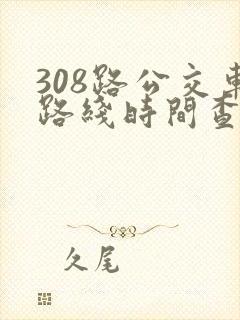 308路公交車
路綫時間查
久尾